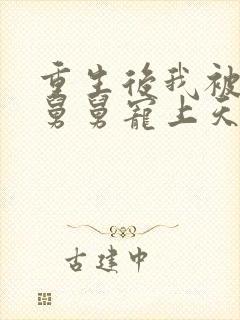 重生後我被
舅舅寵上天
古建中